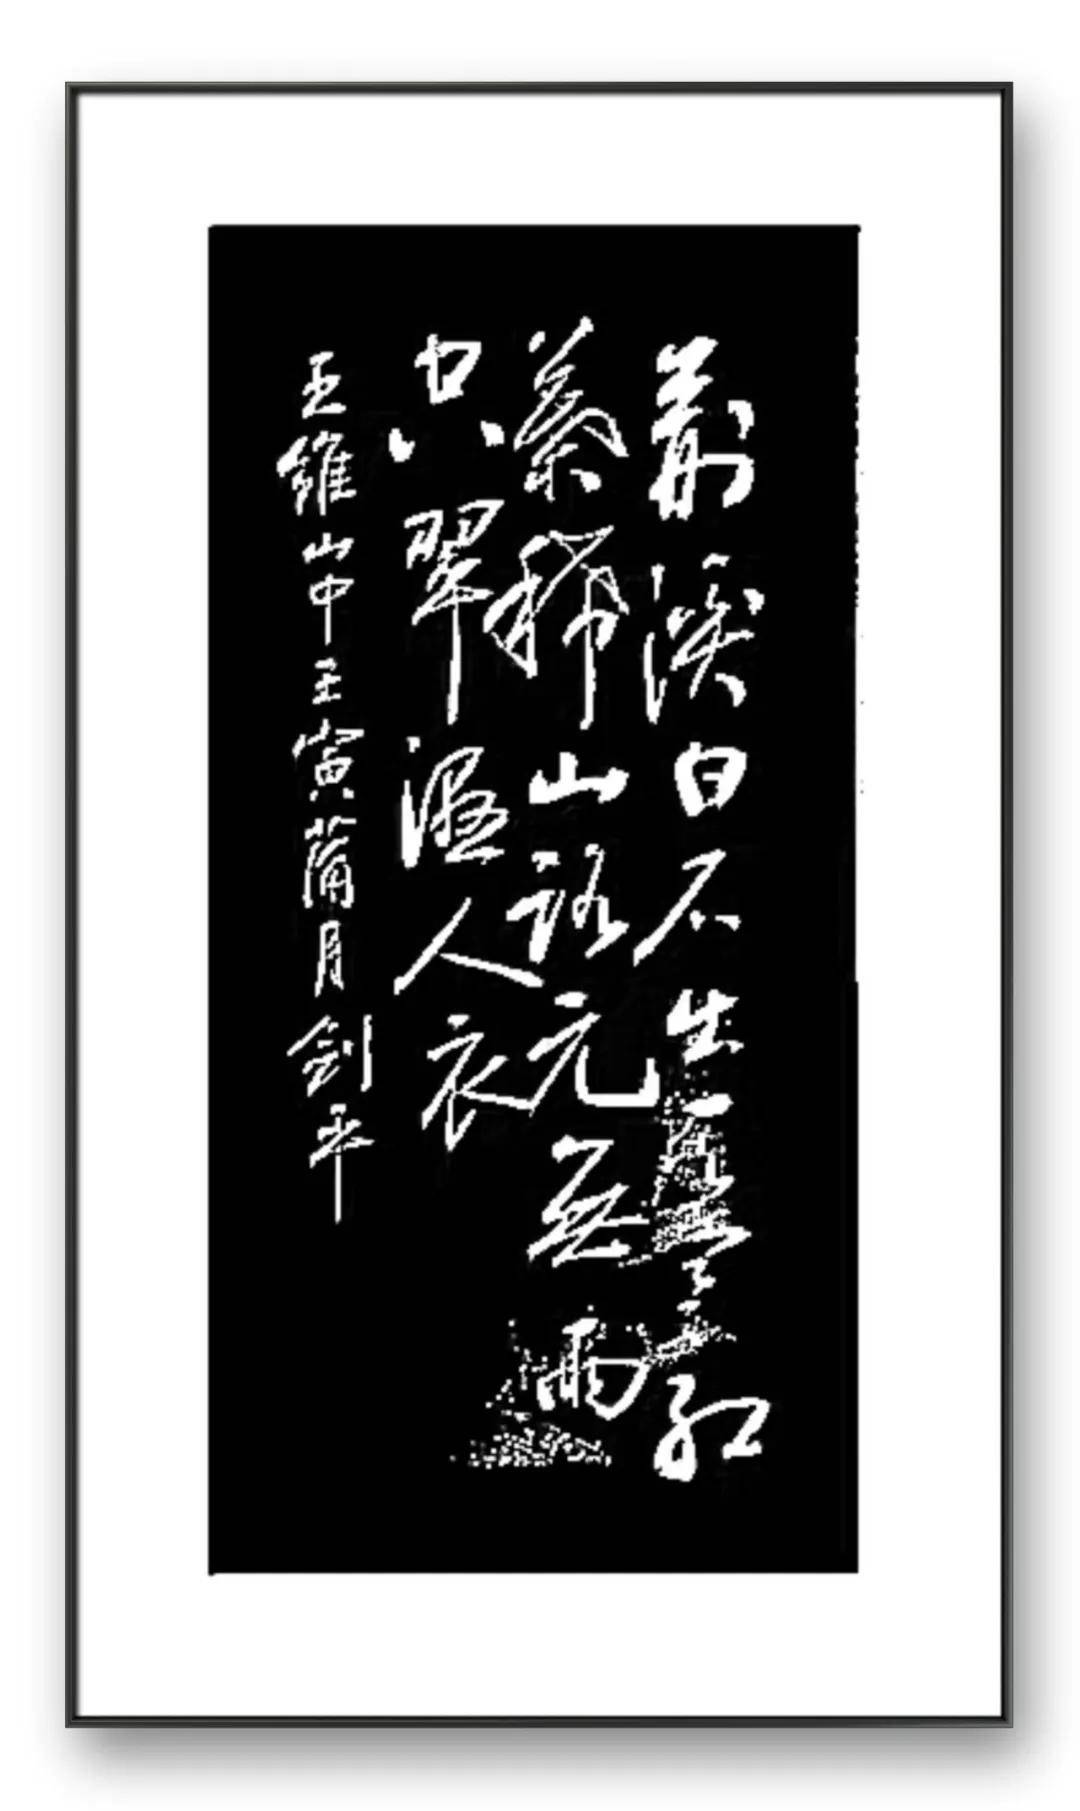 荆溪白石出红
葉稀山路元無雨
空翠濕人衣
王維山中壬寅蒲月剑平